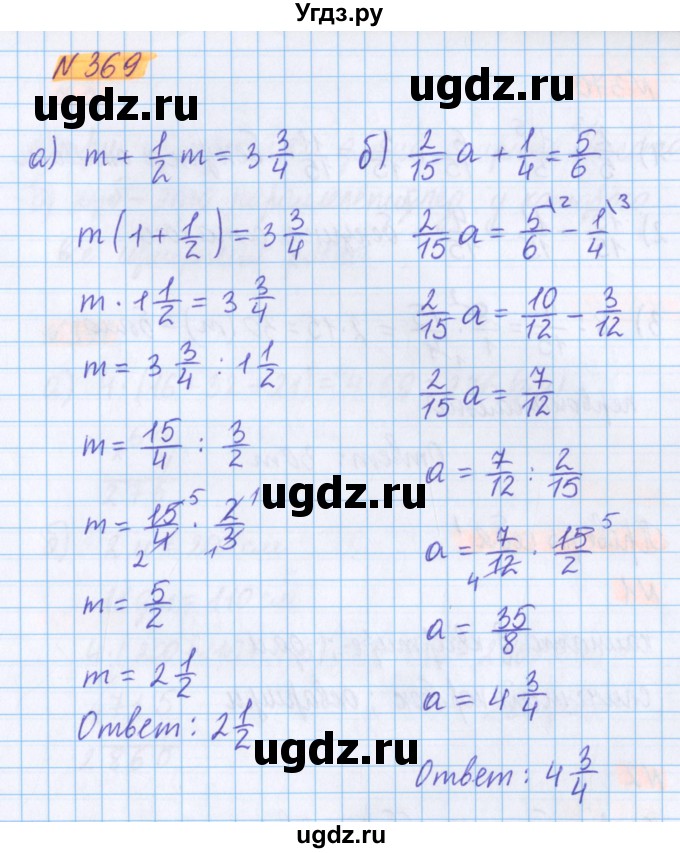 Угдз.ру
N 369
ugdz.ru
ugdz.ru
а) m + 1/2 m = 3 3/4
m(1 + 1/2) = 3 3/4
m · 1 1/2 = 3 3/4
m = 3 3/4 : 1 1/2
m = 15/4 : 3/2
m = 15/4 · 2/3 5 1 2 1
m = 5/2
m = 2 1/2
Ответ: 2 1/2
б) 2/15 a + 1/4 = 5/6
2/15 a = 5/6 \2 - 1/4 \3
2/15 a = 10/12 - 3/12
2/15 a = 7/12
a = 7/12 : 2/15
a = 7/12 · 15/2 5 4
a = 35/8
a = 4 3/4
Ответ: 4 3/4
ugdz.ru
ugdz.ru
ugdz.ru